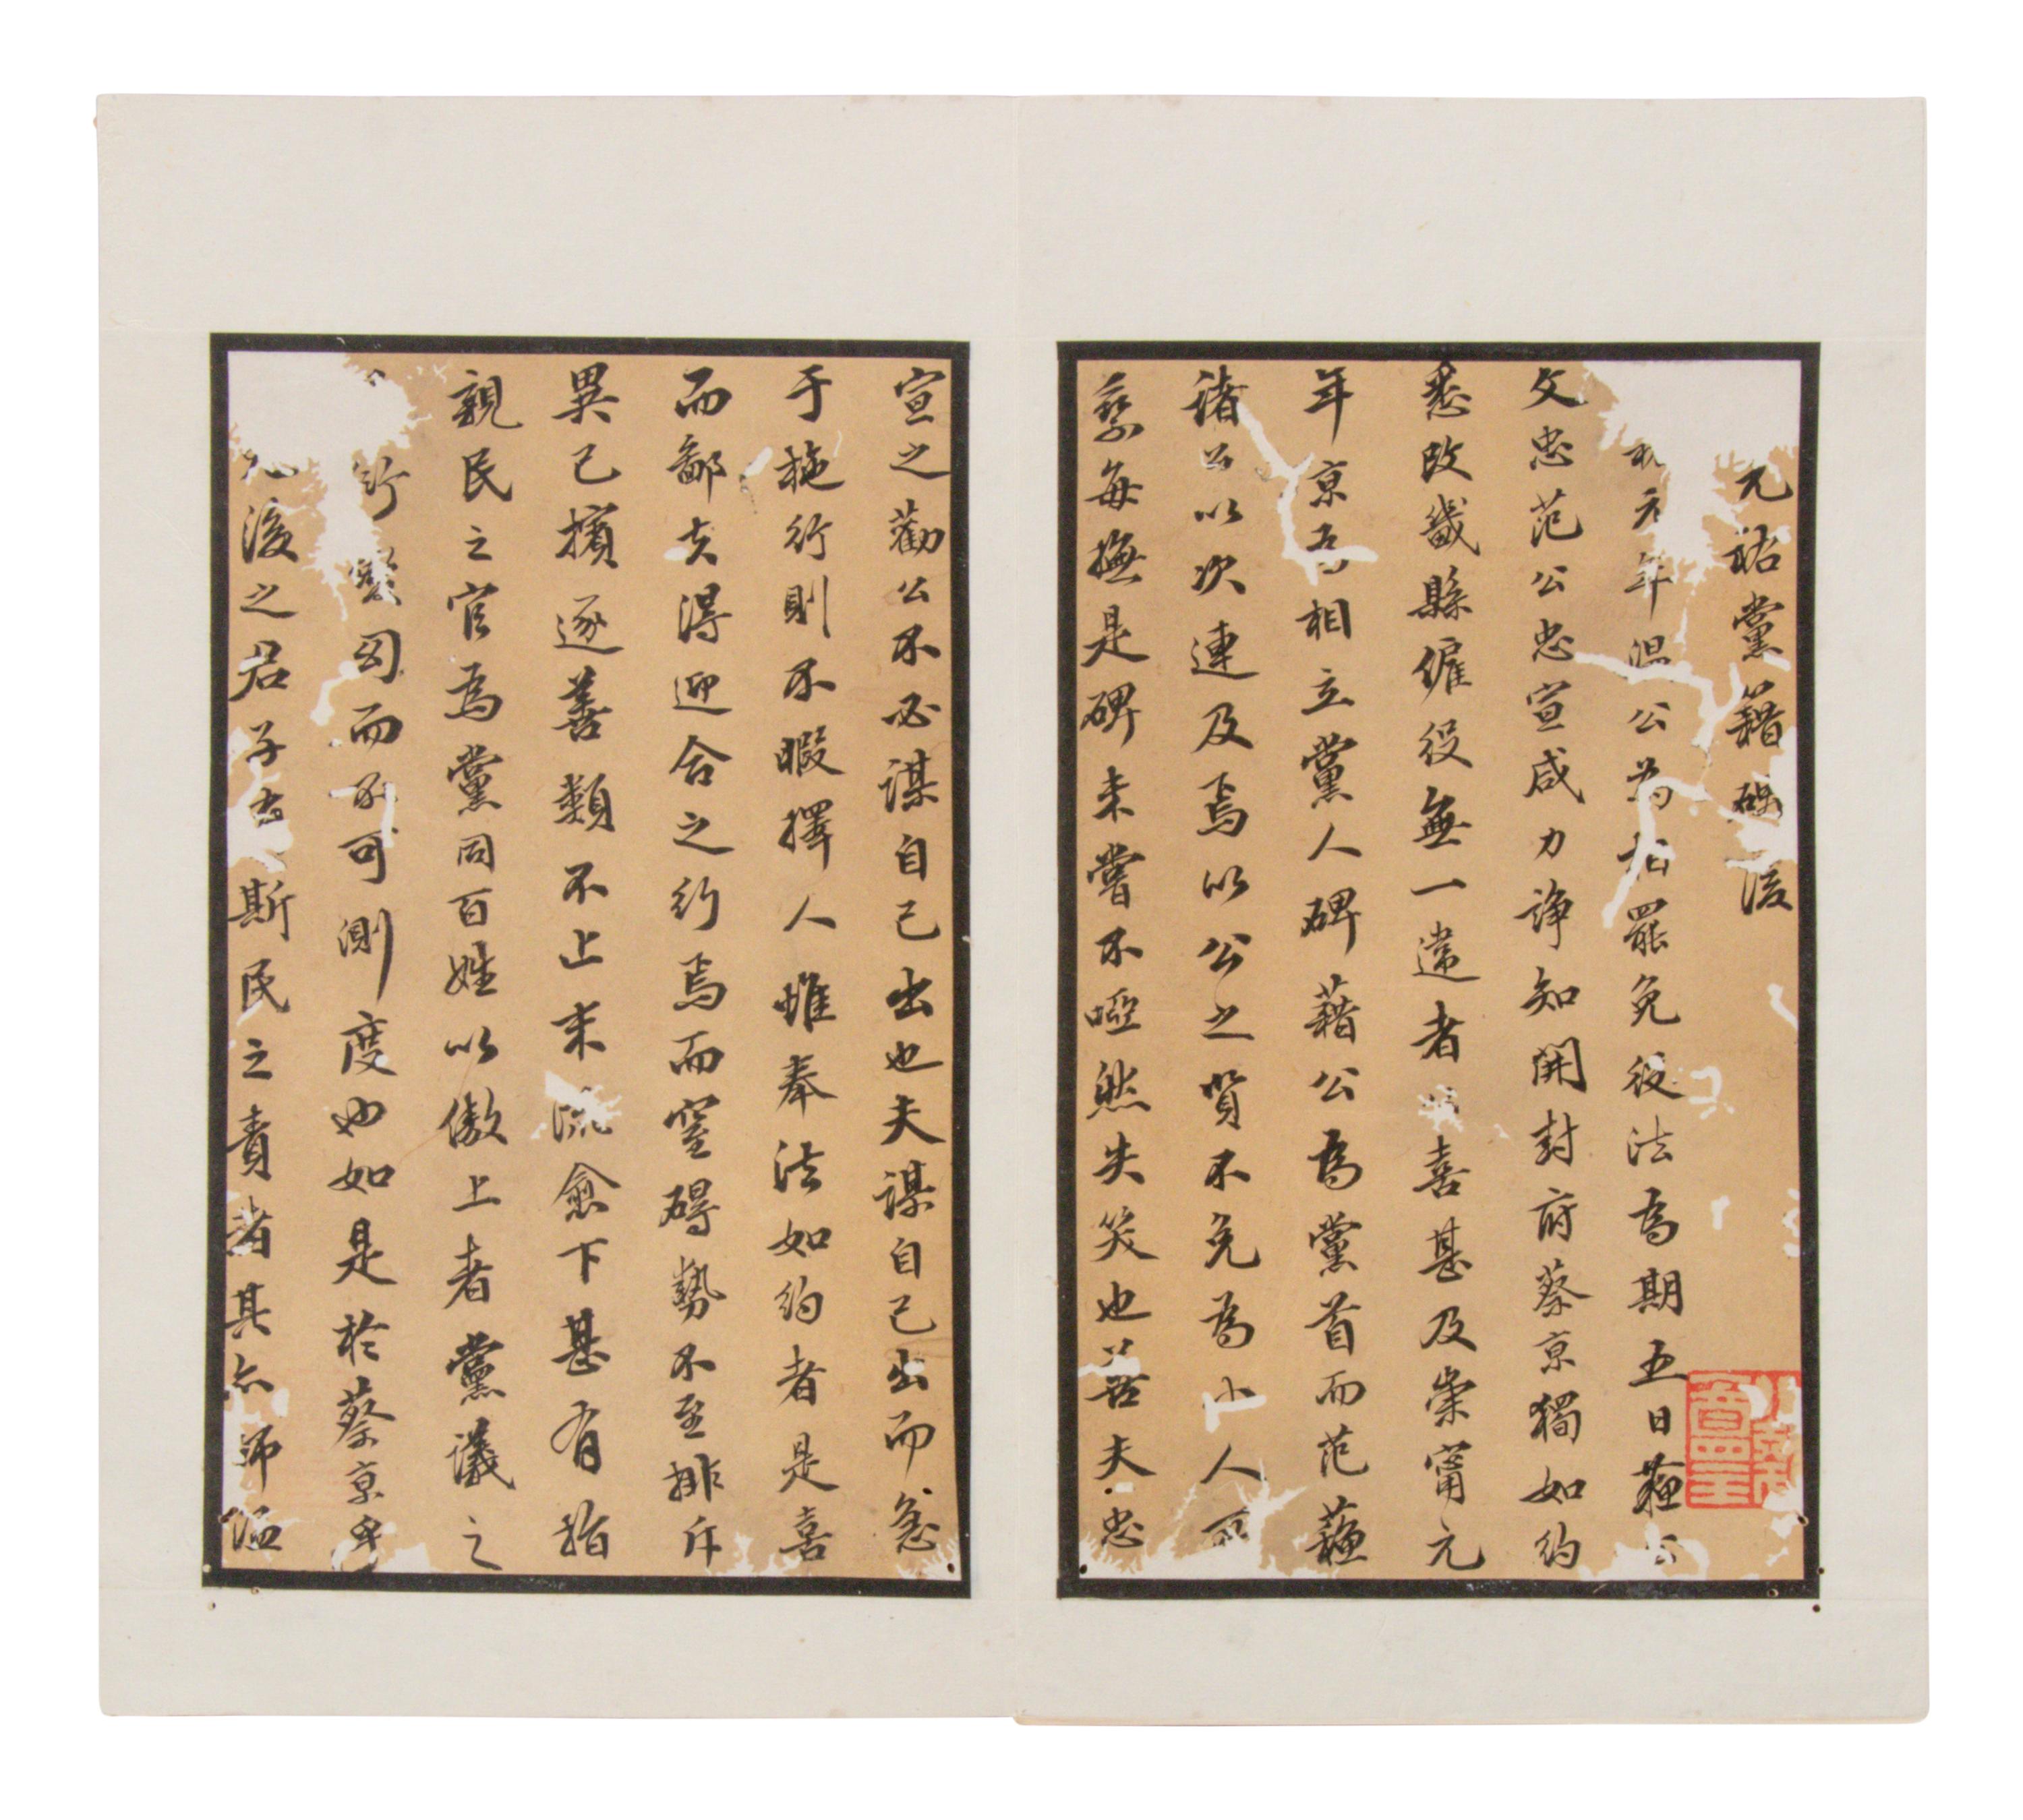 元祐黨籍碑後
元年溫公為相罷免役法為期五日蘇
文忠范公忠宣咸力諍知開封府蔡京獨如約
悉改畿縣僱役無一違者喜甚及崇甯元
年京為相立黨人碑藉公為黨首而范蘇
諸公以次連及焉以公之賢不免為小人所
孽每撫是碑未嘗不啞然失笑也昔夫忠
宣之勸公不必謀自己出也夫謀自己出而急
于施行則不暇擇人惟奉法如約者是喜
而鄙夫得迎合之行焉而窒礙勢不至排斥
異己擯逐善類不止末流愈下甚有指
親民之官為黨同百姓以傲上者黨議之
行變幻而不可測度也如是於蔡京乎
後之君子有斯民之責者其亦師溫